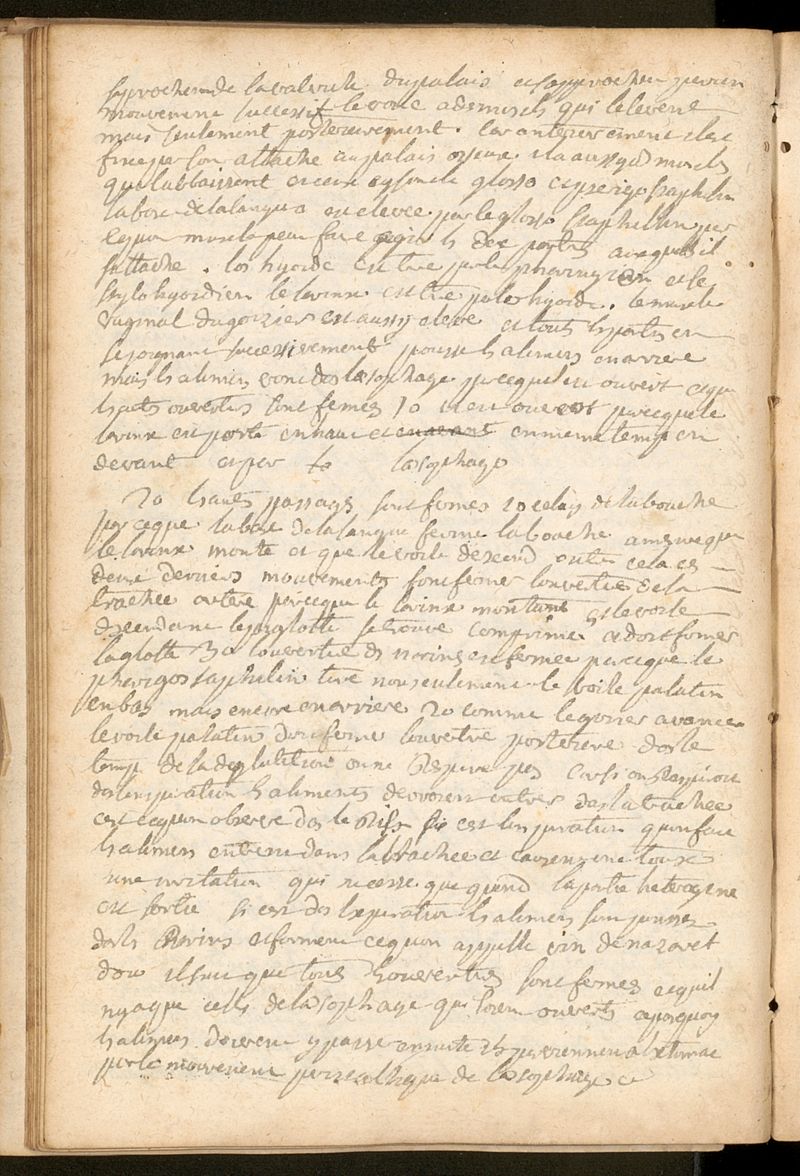 de la valvule du palais et
mouvement successif le voile a des muscles qui le levent
mais seulement posterieurement. car anterieurement il est
fixe par son attache au palais osseux. il a aussy ds muscles
qui labbaissent et ceux cy sont le glosso et perigostaphilin
la base de la langue est elevée par le glosso staphilin par
muscle peut faire agir ls des parties auquel il
sattache. los hyoide est tire par le et le
stylo hyoidien le larinx est tire par los hyoide. le muscle
vaginal du gozier est aussy eleve et touts ls parties en
se joignant successivement pousse ls alimens en arriere
mais ls alimens vont ds lesophage parceque il est ouvert et que
ls auts ouvertus sont fermes 1o il est ouvert parceque le
larinx est porté en haut et en avant en meme temp en
devant et par la lesophage
2o ls auts passags sont fermes 1o celuy de la bouche
parceque la base de la langue ferme la bouche a mesure que
le larinx monte et que le voile descend outre cela ces
deux derniers mouvements font fermer louverture de la
trachée artere parceque le larinx montant et le voile
descendant lepiglotte se trouve comprimé et doit fermer
la glotte 3o louverture ds narines est fermée parceque le
pherigostaphilin tire non seulement le voile palatin
en bas mais encore en arriere 2o comme le gozier avance
le voile palatin doit fermer louverture posterieure ds le
temp de la deglutition on ne respire pas car si on respiroit
ds linspiration ls aliments devroient entrer ds la trachée
cest ce quon observe ds le ris si cest linspiration quon fait
ls alimens entrent dans la trachée et causent une toux
une irritation qui ne cesse que quand la partie heterogene
est sortie si cest ds lexpiration ls alimens sont poussez
ds ls narines et forment ce quon appelle vin de nazaret
dou il suit que touts ls ouvertus sont fermes et quil
ny a que celle de lesophage qui soient ouverts et pourquoy
ls alimens doivent y passer ensuite ils parviennent a lestomac
par le mouvement peristaltique de lesophage